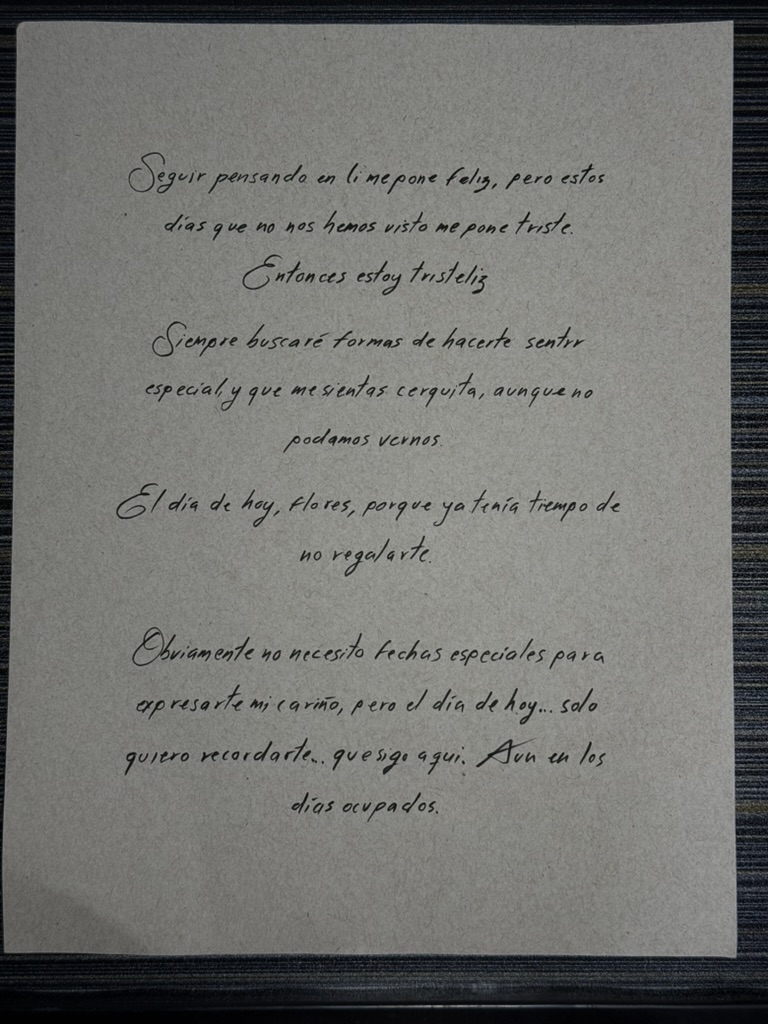 Seguir pensando en ti me pone feliz, pero estos
días que no nos hemos visto me pone triste.
Entonces estoy tristeliz
Siempre buscaré formas de hacerte sentir
especial, y que me sientas cerquita, aunque no
podamos vernos.
El día de hoy, flores, porque ya tenía tiempo de
no regalarte.
Obviamente no necesito fechas especiales para
expresarte mi cariño, pero el día de hoy... solo
quiero recordarte... que sigo aqui. Aun en los
días ocupados.